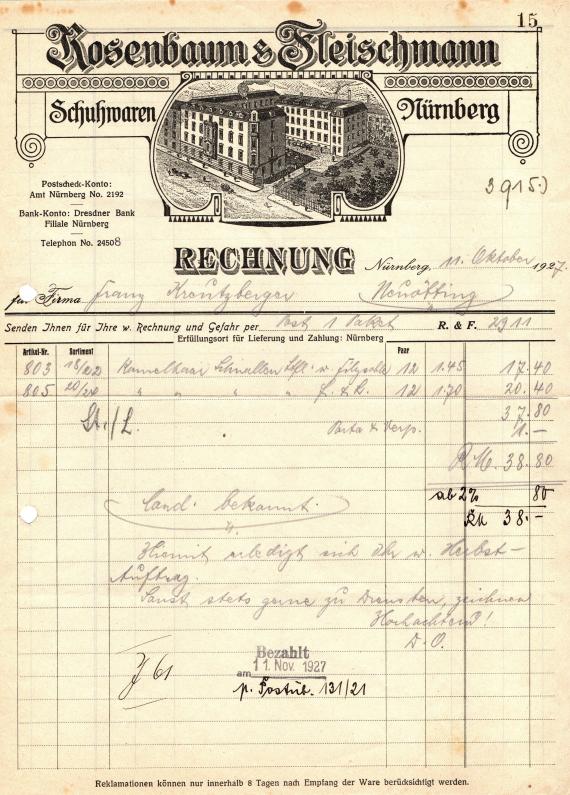 15
Rosenbaum & Fleischmann
Schuhwaren Nürnberg
Postscheck-Konto:
Amt Nürnberg No. 2192
Bank-Konto: Dresdner Bank
Filiale Nürnberg
Telephon No. 24508
3915.)
RECHNUNG
Nürnberg, 11. Oktober 1927.
für Firma Franz Kreutzberger Neuötting
Senden Ihnen für Ihre w. Rechnung und Gefahr per Post 1 Paket R. & F. 2911
Erfüllungsort für Lieferung und Zahlung: Nürnberg
Artikel-Nr. Sortiment Paar
803 18/22 Kamelhaar Schnallen Stfl. w. Filzsohle 12 1.45 17.40
805 20/24 " " " " F. & L. 12 1.70 20.40
37.80
St./L. Porto & Verp. 1.-
R.M. 38.80
ab 2% 80
RM 38.-
Cond. bekannt.
Hiermit erledigt sich Ihr w. Herbst-
Auftrag.
Sonst stets gerne zu Diensten, zeichnen
Hochachtend!
D. O.
J 61
Bezahlt
am 11. Nov. 1927
p. Postüb. 131/21
Reklamationen können nur innerhalb 8 Tagen nach Empfang der Ware berücksichtigt werden.